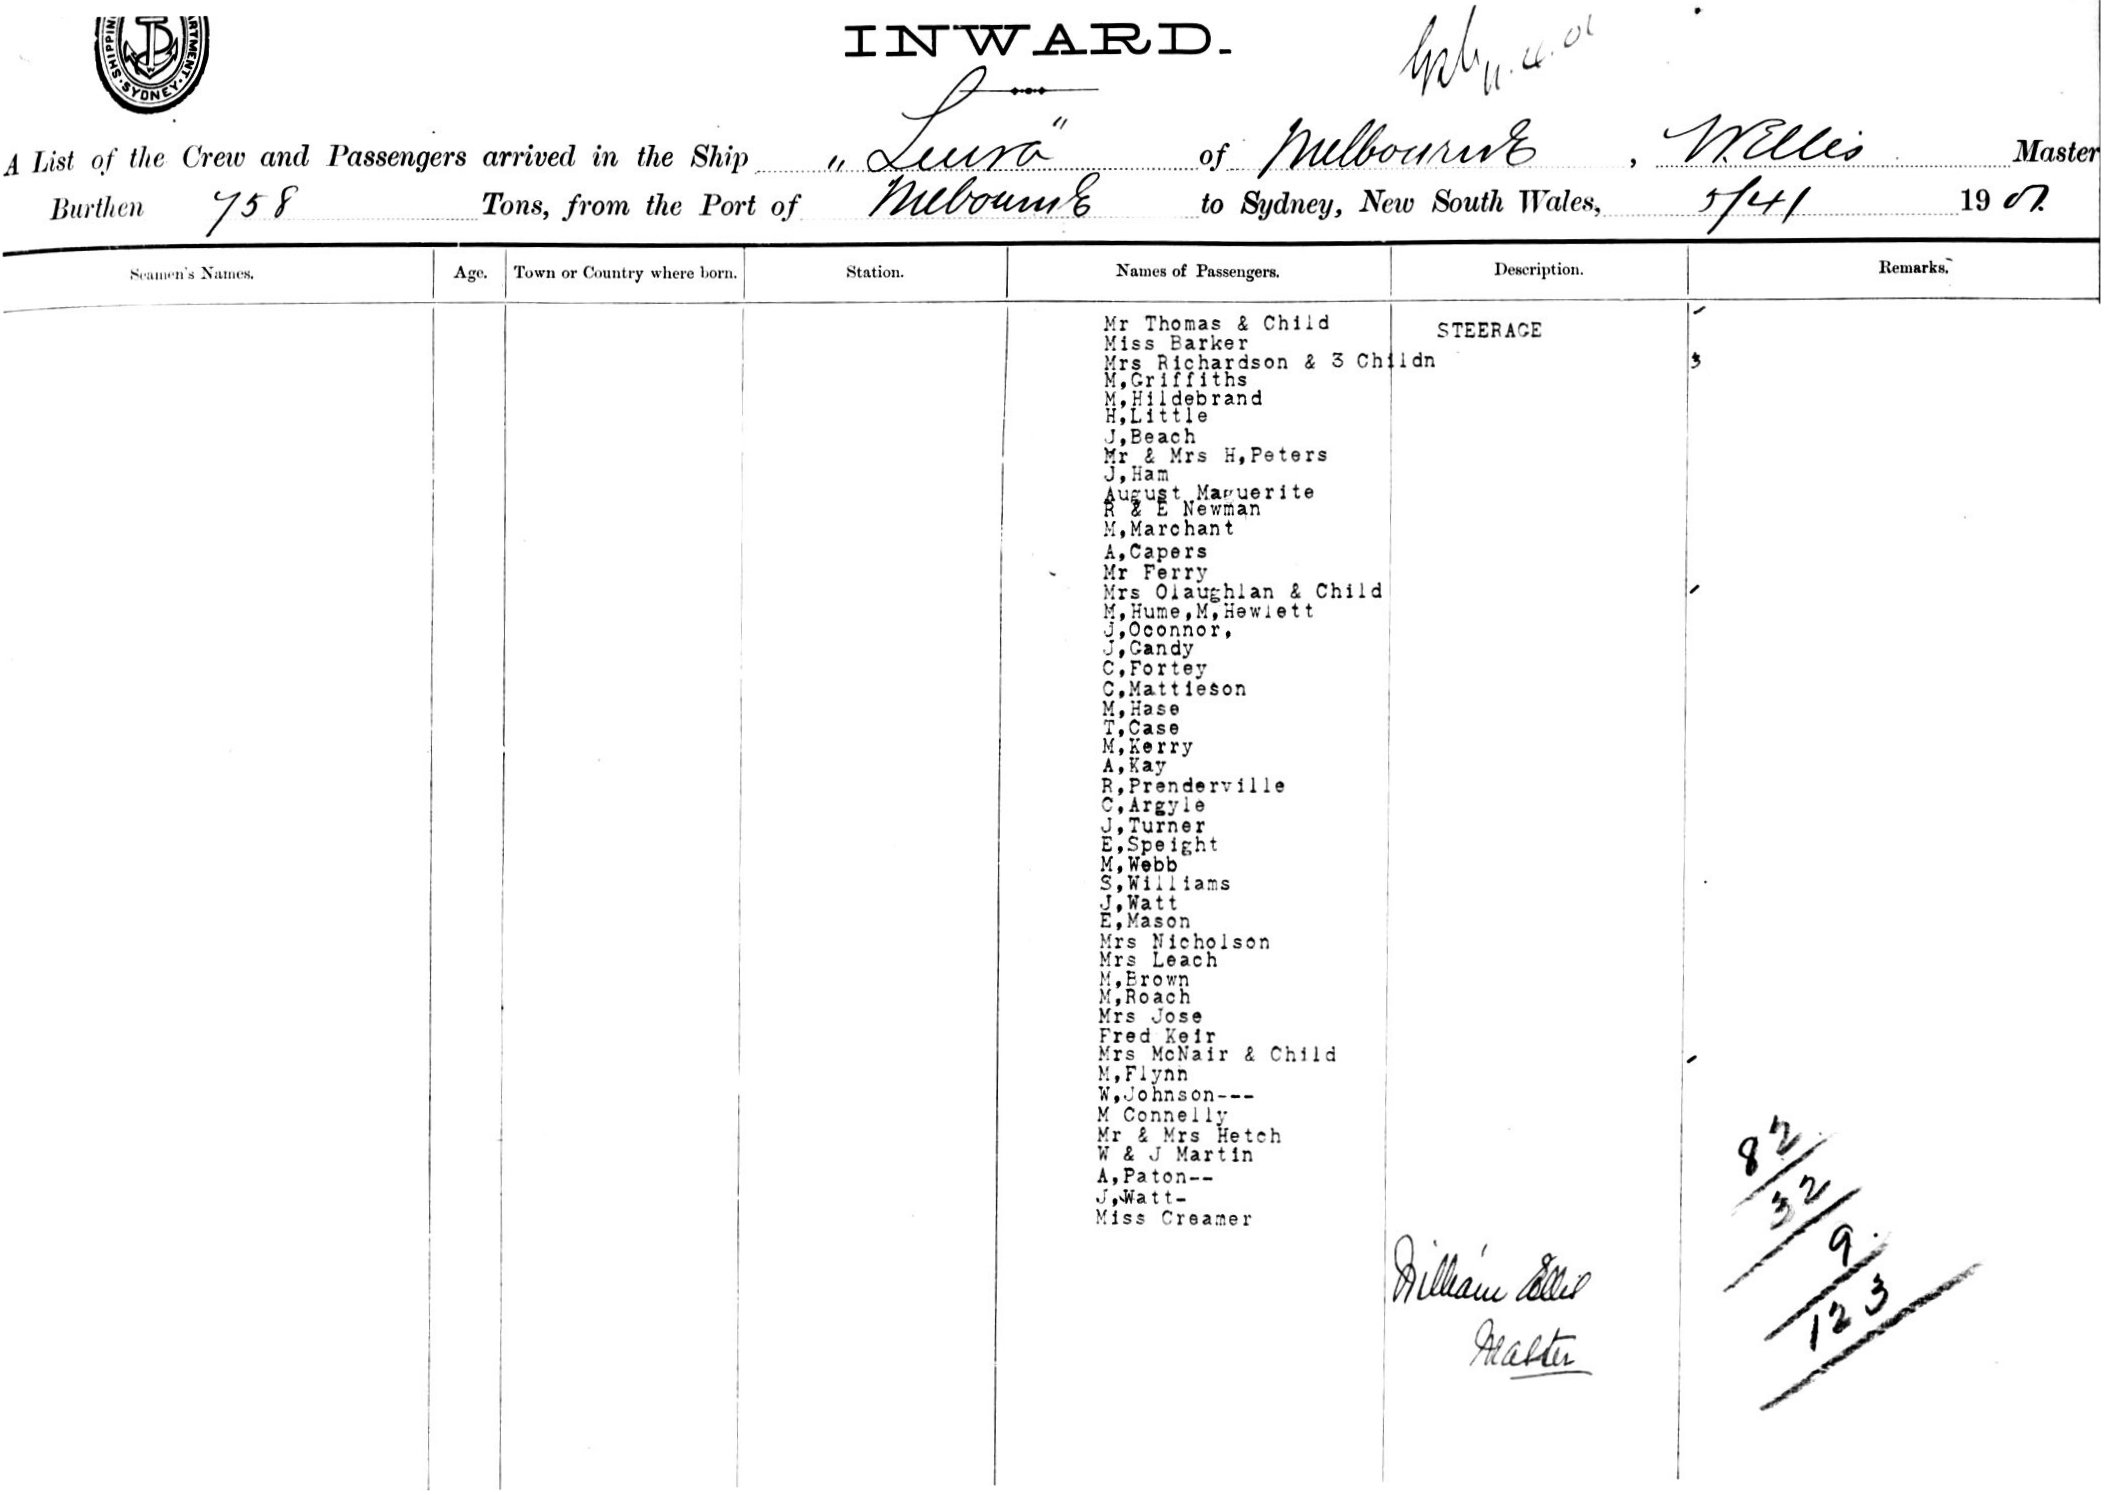 SHIPPING
SYDNEY
INWARD.
A List of the Crew and Passengers arrived in the Ship "Leura" of Melbourne, W. Ellis Master
Burthen 758 Tons, from the Port of Melbourne to Sydney, New South Wales, 5/4/ 1901.
Seamen's Names. Age. Town or Country where born. Station. Names of Passengers. Description. Remarks.
Mr Thomas & Child STEERAGE
Miss Barker
Mrs Richardson & 3 Childn 3
M,Griffiths
M,Hildebrand
H,Little
J,Beach
Mr & Mrs H,Peters
J,Ham
August Maguerite
R & E Newman
M,Marchant
A,Capers
Mr Ferry
Mrs Olaughlan & Child
M,Hume,M,Hewlett
J,Oconnor,
J,Gandy
C,Fortey
C,Mattieson
M,Hase
T,Case
M,Kerry
A,Kay
R,Prenderville
C,Argyle
J,Turner
E,Speight
M,Webb
S,Williams
J,Watt
E,Mason
Mrs Nicholson
Mrs Leach
M,Brown
M,Roach
Mrs Jose
Fred Keir
Mrs McNair & Child
M,Flynn
W,Johnson---
M Connelly
Mr & Mrs Hetch
W & J Martin
A,Paton--
J,Watt-
Miss Creamer
82
32
9
123
William Ellis
Master